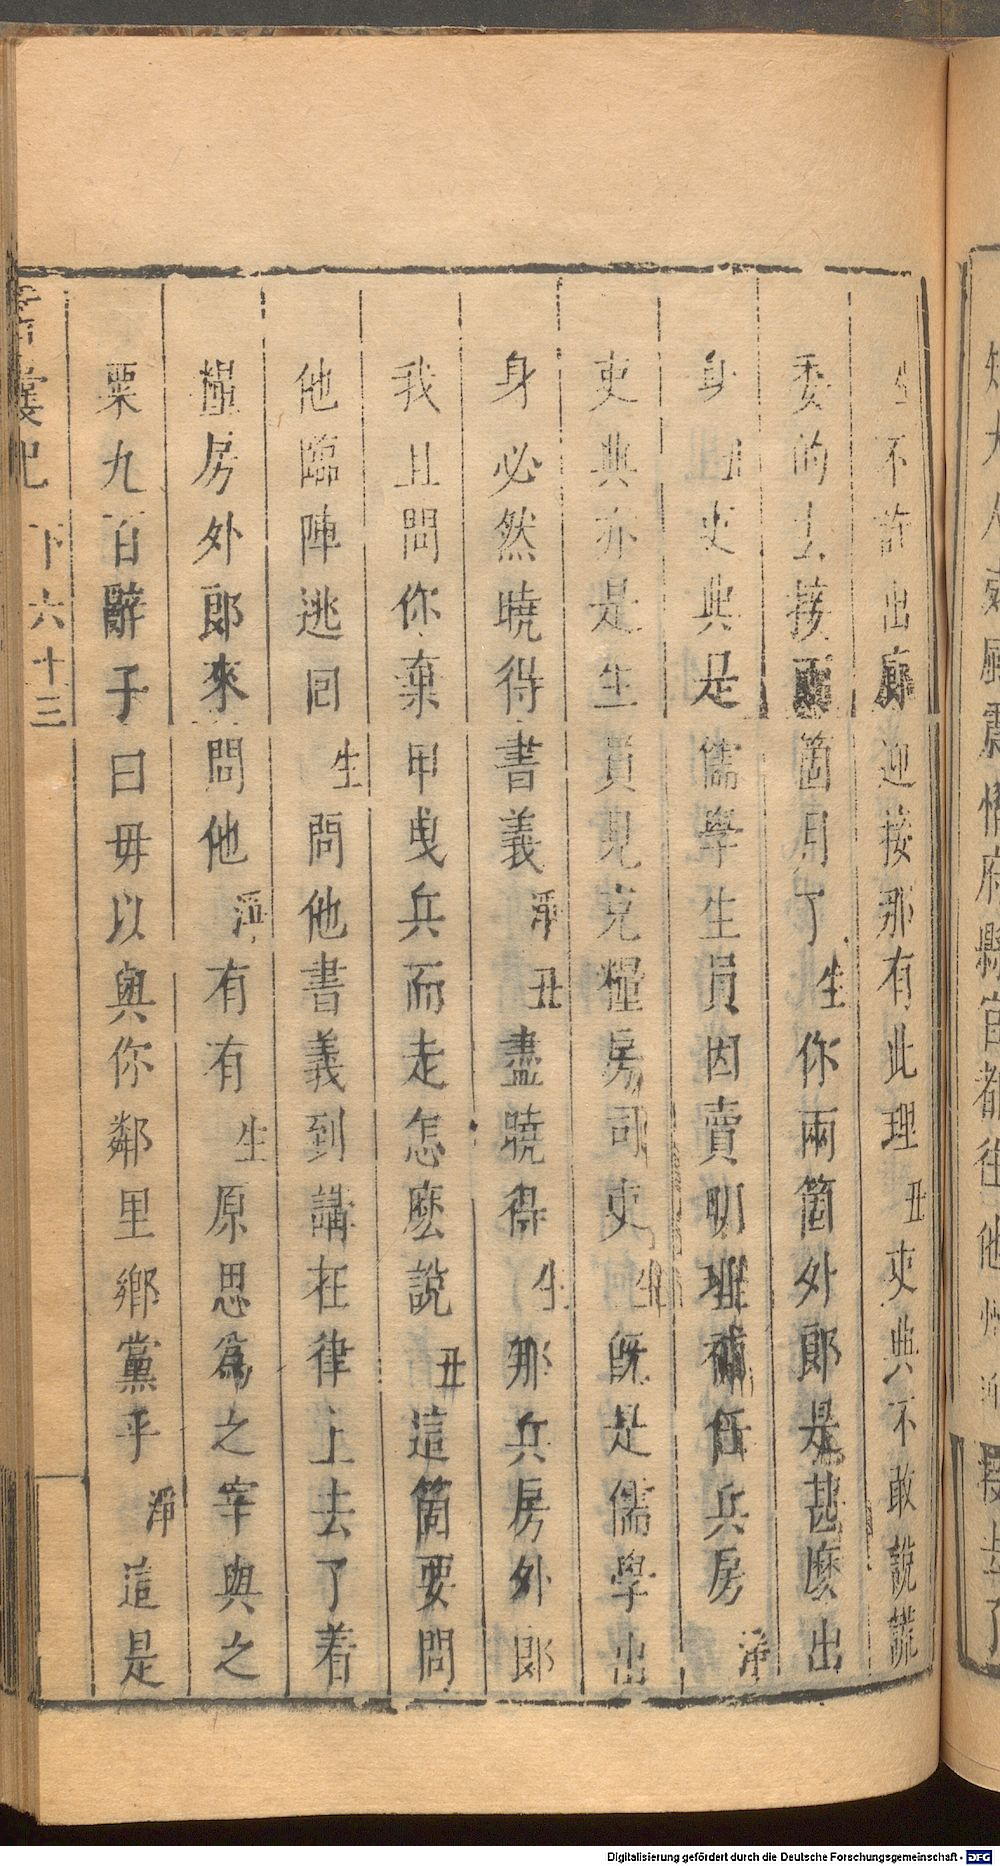 生不許出廓迎接那有此理丑吏典不敢說謊
委的去接兩箇月了生你兩箇外郎是甚麼出
身丑吏典是儒學生員因賣明理補任兵房淨
吏典亦是生員見充糧房司吏生旣是儒學出
身必然曉得書義淨丑盡曉得生那兵房外郎
我且問你棄甲曳兵而走怎麼說丑這箇要問
他臨陣逃回生問他書義到講在律上去了着
糧房外郎來問他淨有有生原思爲之宰與之
粟九百辭子曰毋以與你鄰里鄉黨乎淨這是
下六十三
Digitalisierung gefördert durch die Deutsche Forschungsgemeinschaft - DFG